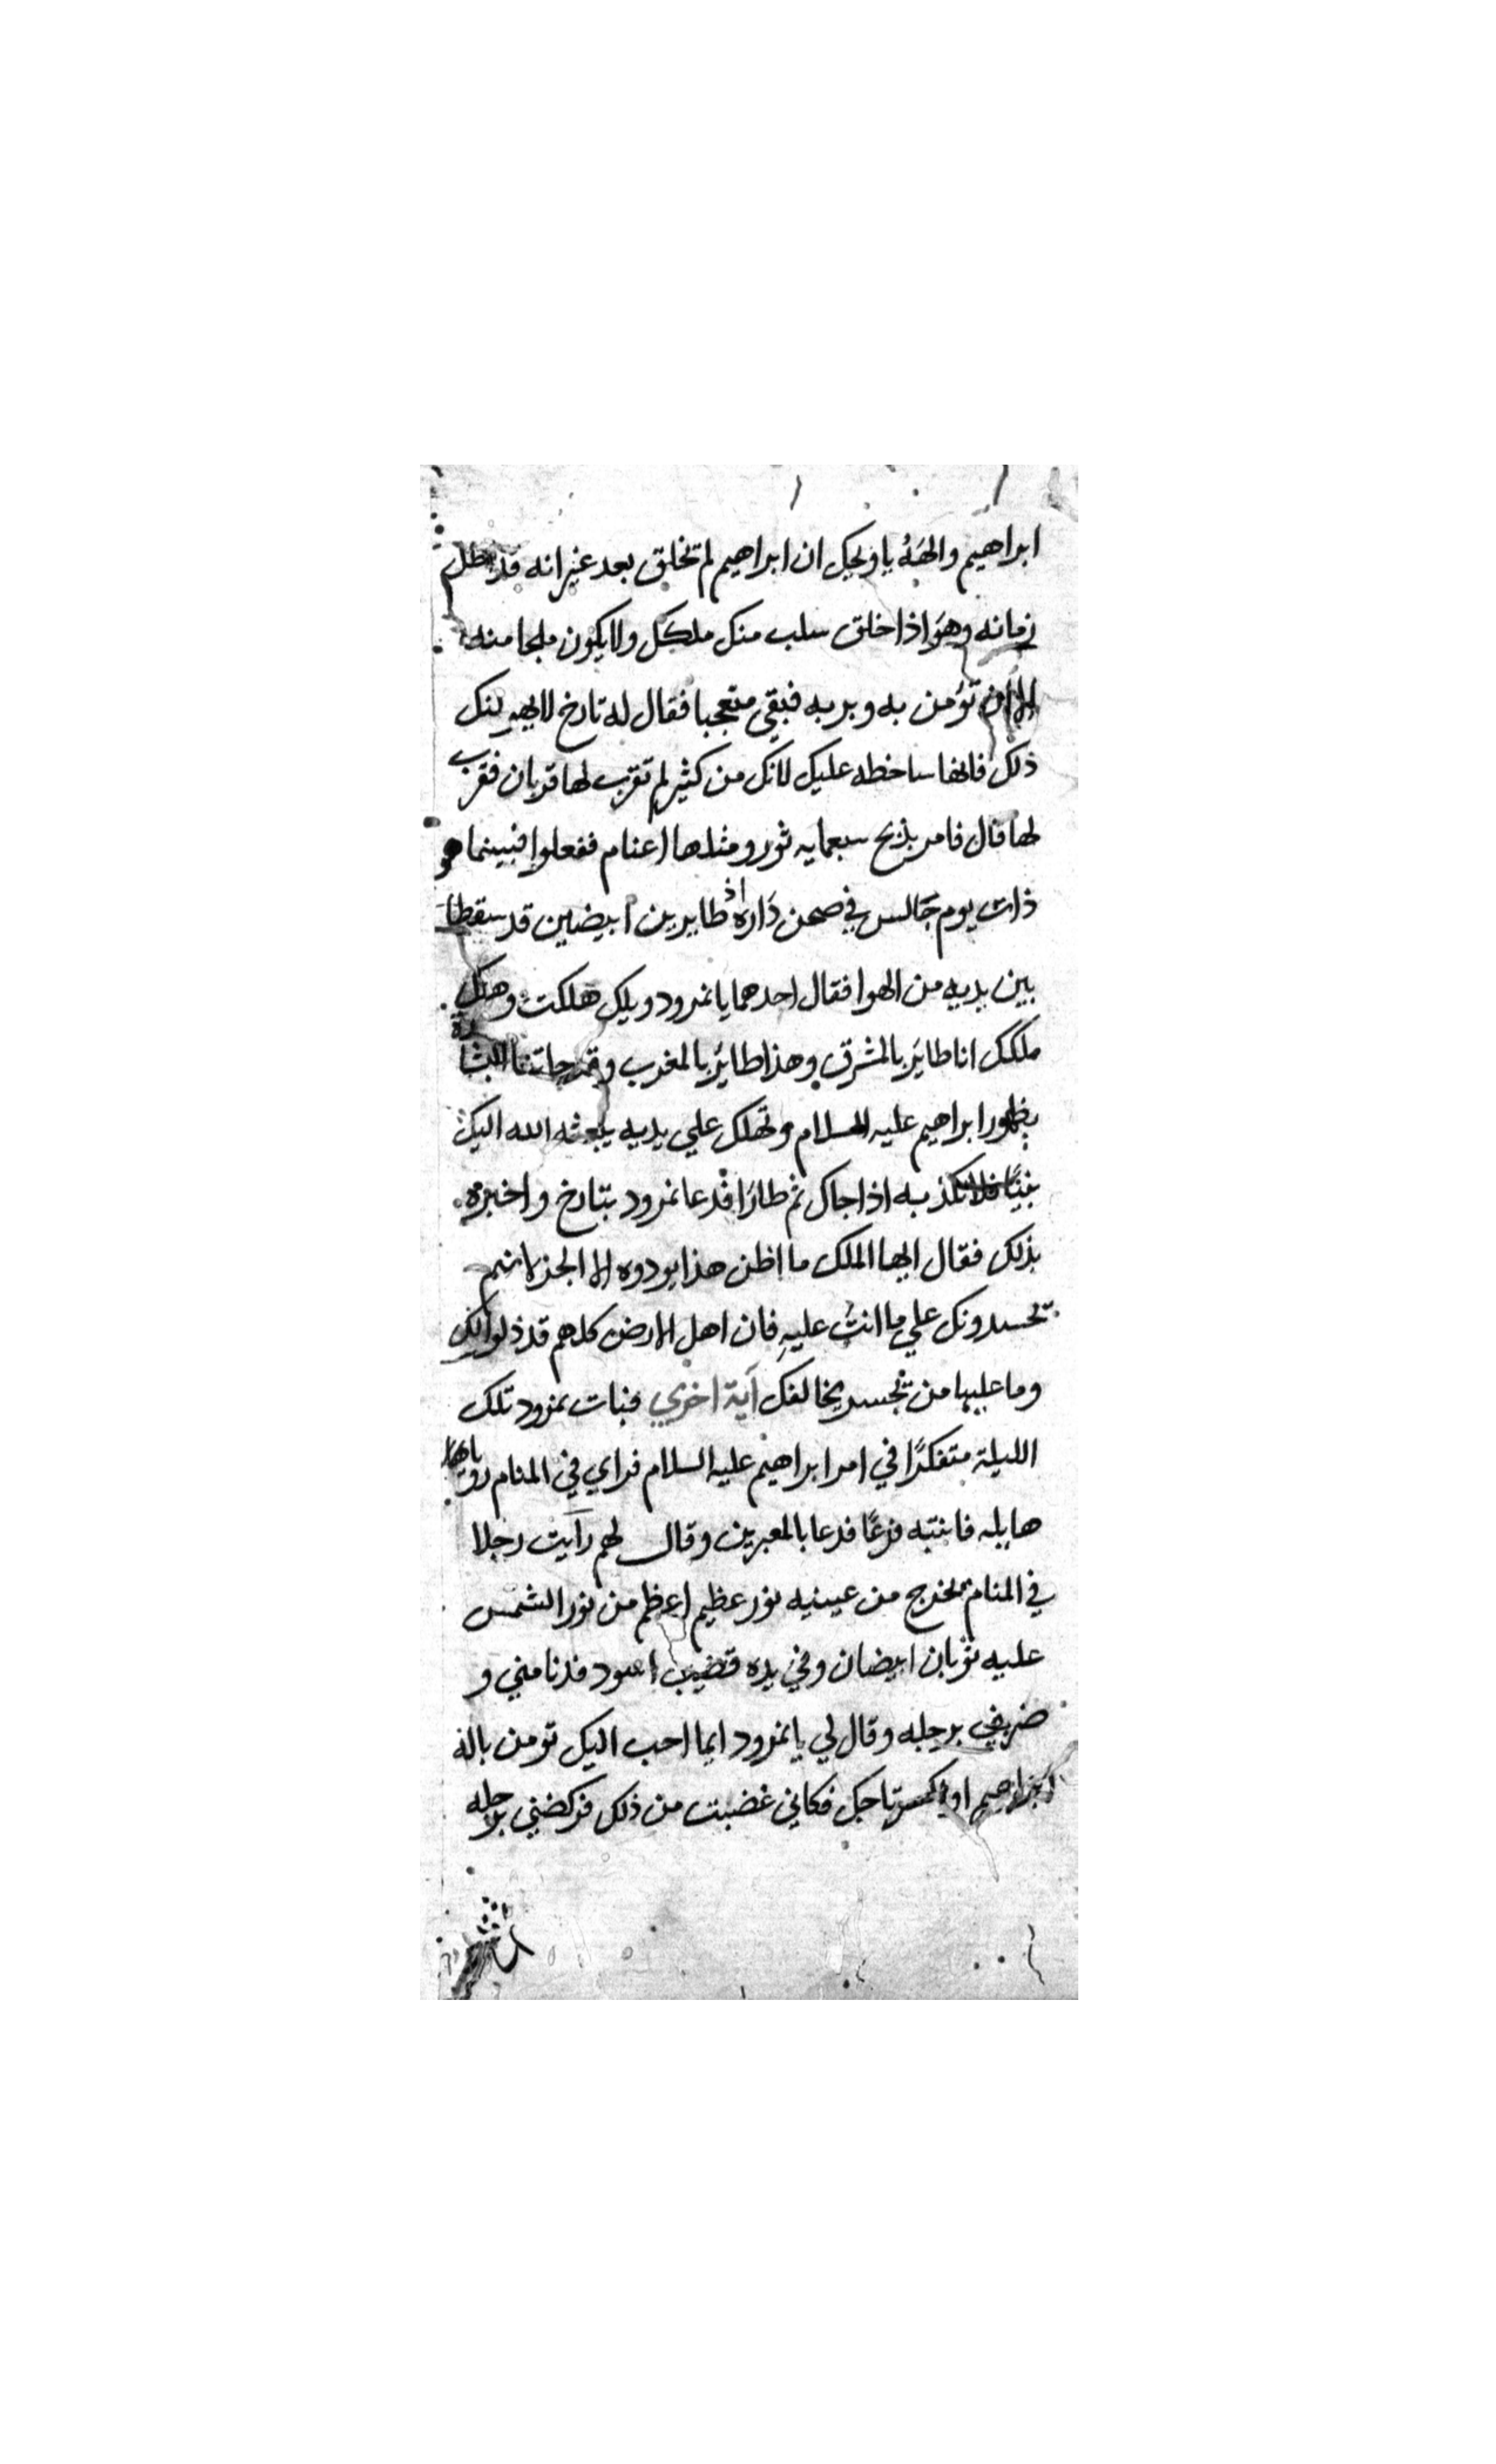 ابراهيم والهَهُ ياويحك ان ابراهيم لم تخلق بعد غير انه قد
زمانه وهوَ اذا خلق سلب منك ملكك ولا يكون ملجا منه
الا ان تؤمن به وبربه فبقي متعجبا فقال له تارخ لا يهولنك
ذلك فانها ساخطه عليك لانك من كثير لم تقرب لها قربان فقرب
لها قال فامر بذبح سبعمايه ثور ومثلها اغنام ففعلوا فبينما هو
ذات يوم جَالس في صحن دَاره اذ طايرين ابيضين قد سقطا
بين يديه من الهوا فقال احدهما يا نمرود ويلك هلكت وهلك
ملكك انا طايرٌ بالمشرق وهذا طايرٌ بالمغرب وقد جاتنا البشارة
بظهور ابراهيم عليه السلام وتهلك علي يديه يبعثه الله اليك
نبيًا فلا تكذ به اذا جاك ثم طارَا فدعا نمرود بتارخ واخبره
بذلك فقال ايها الملك ما اظن هذا يودوه الا الجن لانهم
تحسدونك علي ما انتُ عليهِ فان اهل الارض كلهم قد ذلوا لك
وما عليها من تجسر يخالفك آية اخري فبات نمرود تلك
الليلة متفكرًا في امر ابراهيم عليه السلام فراي في المنام روياها
هايله فانتبه فزعًا فدعا بالمعبرين وقال لهم رآيت رجلا
في المنام تخرج من عينيه نور عظيم اعظم من نور الشمس
عليه ثوبان ابيضان وفي يده قضيب اسود فدنا مني و
ضربني برجله وقال لي يا نمرود ايما احب اليك تومن باله
ابراهيم او اكسر تاجك فكاني غضبت من ذلك فركضني برجله